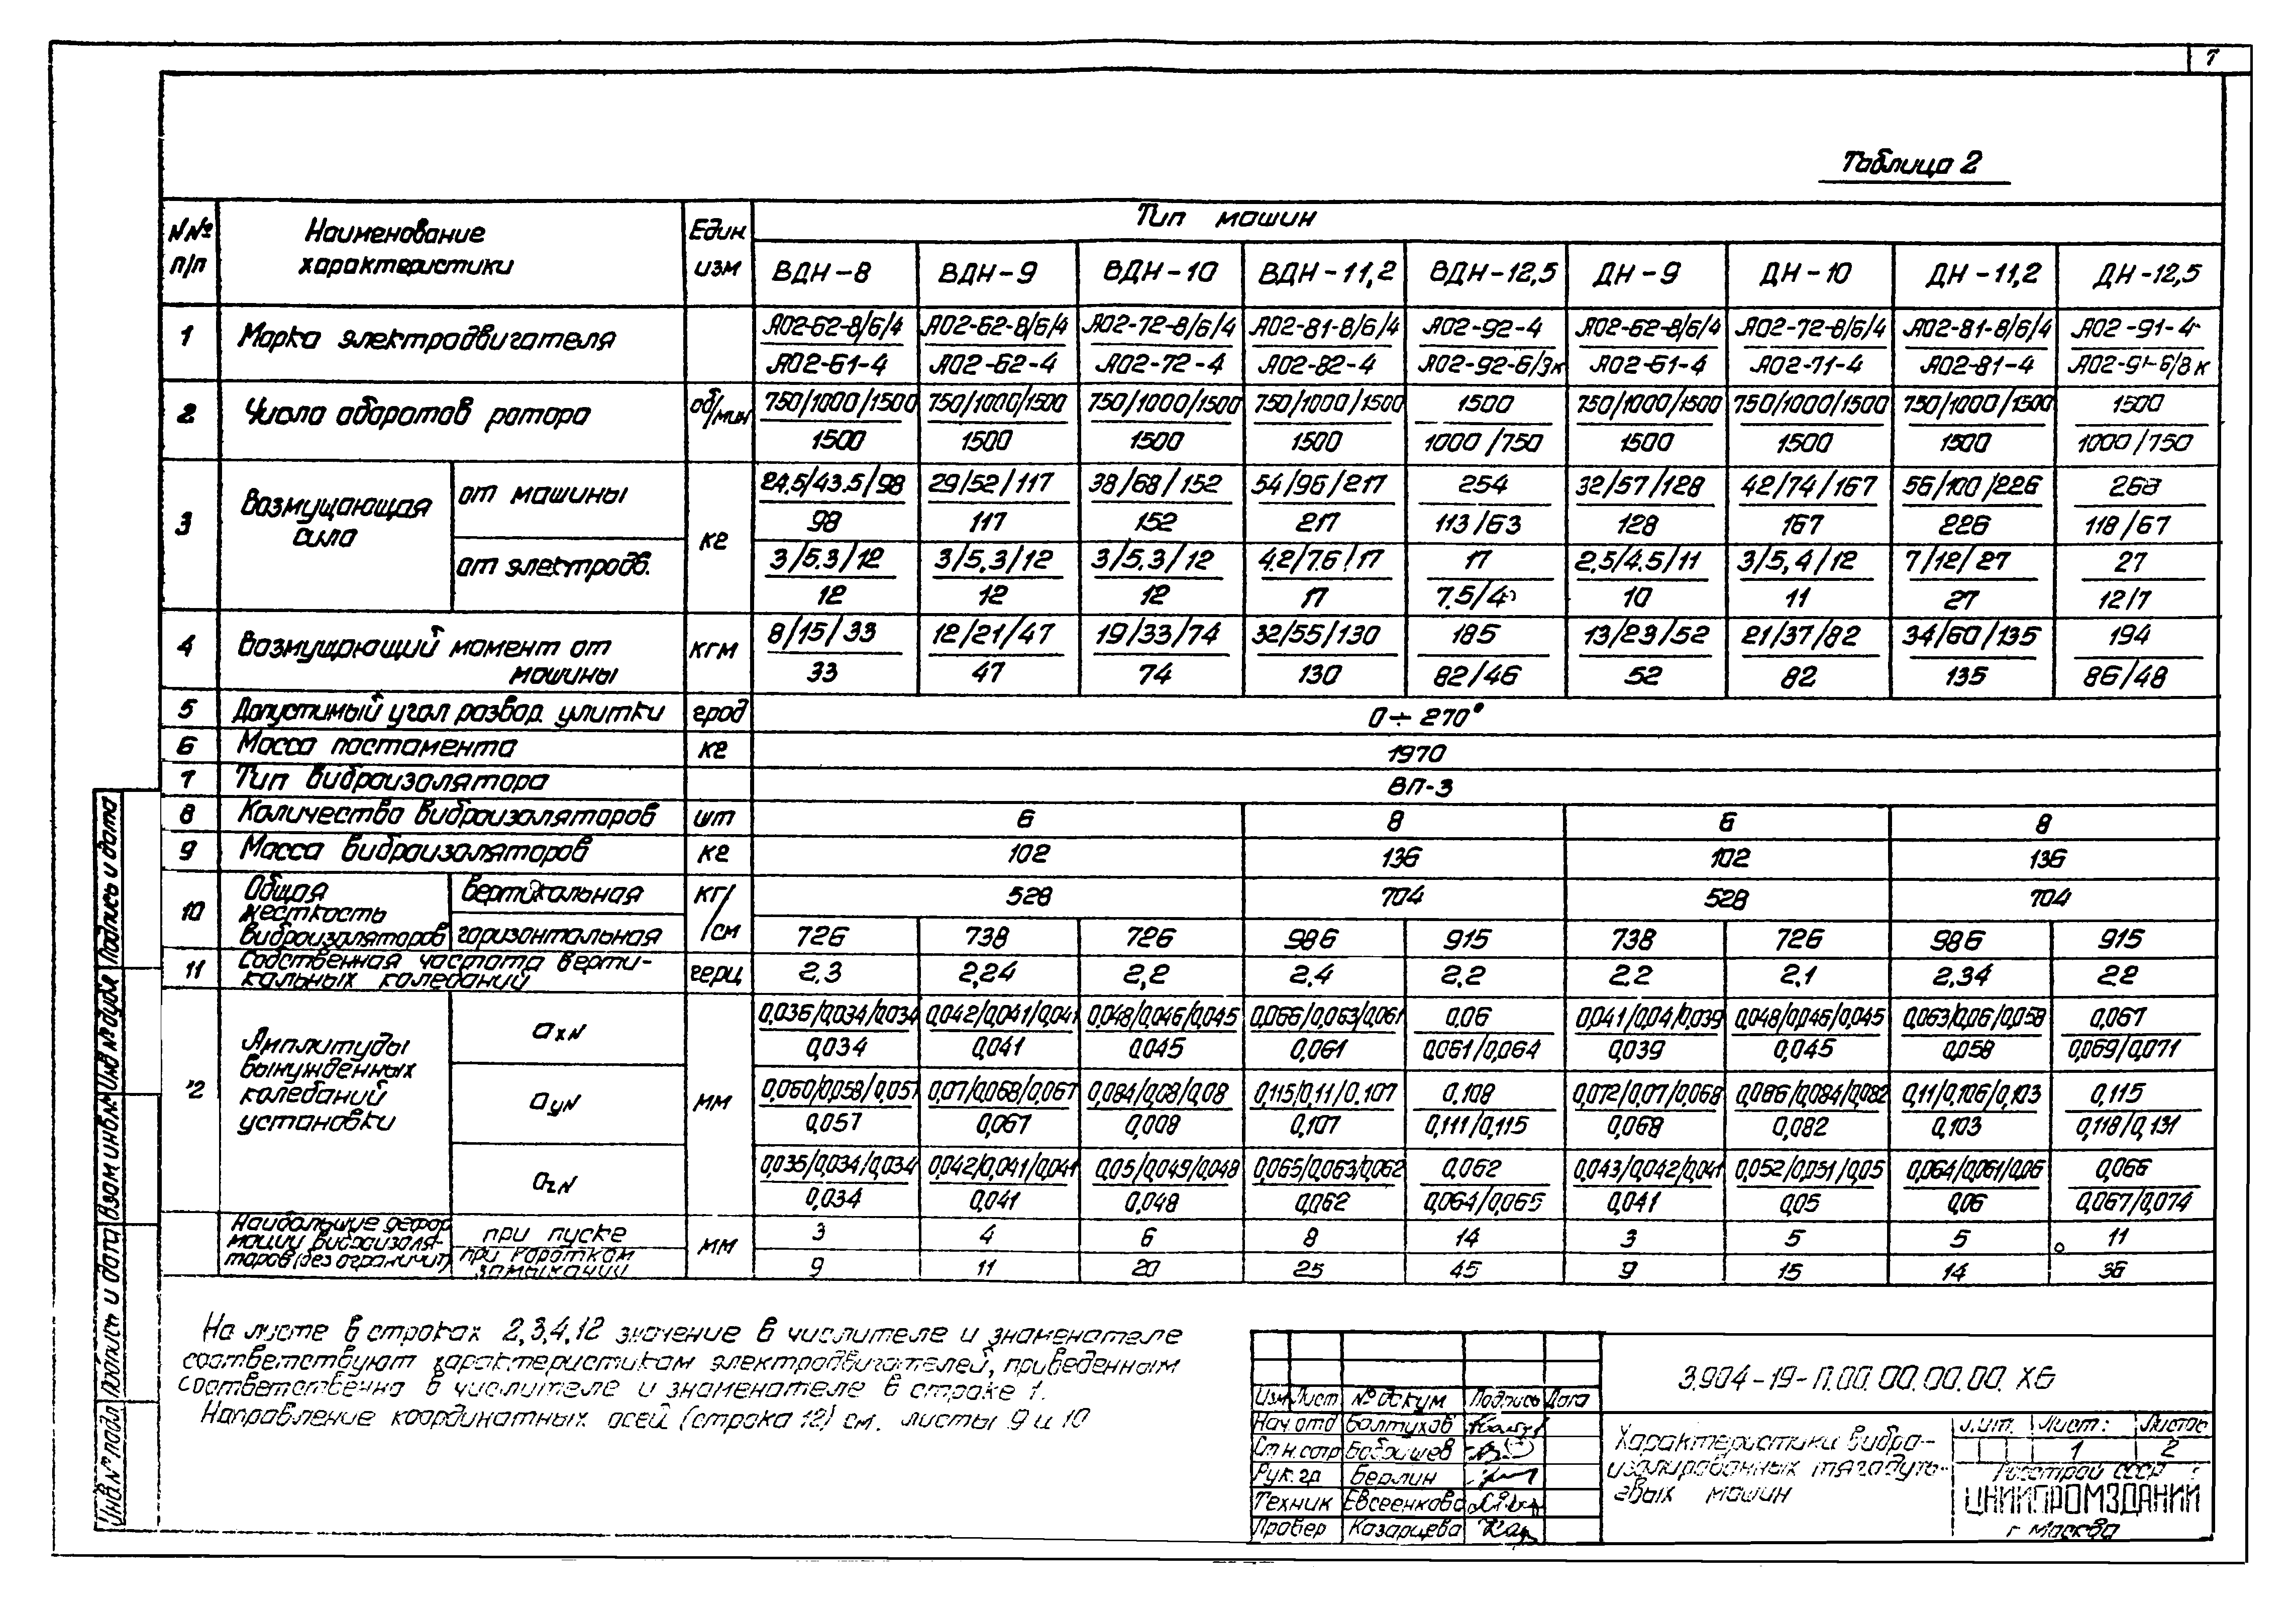 7
Таблица 2
N№ п/п | Наименование характеристики | Един изм | Тип машин
ВДН-8 | ВДН-9 | ВДН-10 | ВДН-11,2 | ВДН-12,5 | ДН-9 | ДН-10 | ДН-11,2 | ДН-12,5
1 | Марка электродвигателя | АО2-62-8/6/4 | АО2-62-8/6/4 | АО2-72-8/6/4 | АО2-81-8/6/4 | АО2-92-4 | АО2-62-8/6/4 | АО2-72-8/6/4 | АО2-81-8/6/4 | АО2-91-4
АО2-61-4 | АО2-62-4 | АО2-72-4 | АО2-82-4 | АО2-92-6/3к | АО2-61-4 | АО2-71-4 | АО2-81-4 | АО2-91-6/8к
2 | Число оборотов ротора | об/мин | 750/1000/1500 | 750/1000/1500 | 750/1000/1500 | 750/1000/1500 | 1500 | 750/1000/1500 | 750/1000/1500 | 750/1000/1500 | 1500
1500 | 1500 | 1500 | 1500 | 1000/750 | 1500 | 1500 | 1500 | 1000/750
3 | Возмущающая сила | от машины | кг | 24,5/43.5/98 | 29/52/117 | 38/68/152 | 54/96/217 | 254 | 32/57/128 | 42/74/167 | 56/100/226 | 268
98 | 117 | 152 | 217 | 113/63 | 128 | 167 | 226 | 118/67
от электродв. | 3/5.3/12 | 3/5.3/12 | 3/5.3/12 | 4.2/7.6/17 | 17 | 2.5/4.5/11 | 3/5,4/12 | 7/12/27 | 27
12 | 12 | 12 | 17 | 7.5/4 | 10 | 11 | 27 | 12/7
4 | Возмущающий момент от машины | кгм | 8/15/33 | 12/21/47 | 19/33/74 | 32/55/130 | 185 | 13/23/52 | 21/37/82 | 34/60/135 | 194
33 | 47 | 74 | 130 | 82/46 | 52 | 82 | 135 | 86/48
5 | Допустимый угол развор улитки | град | 0÷270°
6 | Масса постамента | кг | 1970
7 | Тип виброизолятора | ВП-3
8 | Количество виброизоляторов | шт | 6 | 8 | 6 | 8
9 | Масса виброизоляторов | кг | 102 | 136 | 102 | 136
10 | Общая жесткость виброизоляторов | вертикальная | кг/см | 528 | 704 | 528 | 704
горизонтальная | 726 | 738 | 726 | 986 | 915 | 738 | 726 | 986 | 915
11 | Собственная частота вертикальных колебаний | герц | 2,3 | 2,24 | 2,2 | 2.4 | 2.2 | 2.2 | 2.1 | 2,34 | 2.2
12 | Амплитуды вынужденных колебаний установки | axN | мм | 0,036/0,034/0,034 | 0,042/0,041/0,041 | 0,048/0,046/0,045 | 0,066/0,063/0,061 | 0.06 | 0,041/0,04/0,039 | 0,048/0,046/0,045 | 0,063/0,06/0,058 | 0,067
0,034 | 0,041 | 0.045 | 0,061 | 0,061/0,064 | 0,039 | 0,045 | 0,058 | 0,069/0,071
ayN | 0,060/0,058/0,057 | 0,07/0,068/0,067 | 0,084/0,08/0,08 | 0,115/0,11/0.107 | 0,108 | 0,072/0,07/0,068 | 0,086/0,084/0,082 | 0,11/0,106/0,103 | 0,115
0,057 | 0,067 | 0,008 | 0,107 | 0,111/0,115 | 0,068 | 0,082 | 0,103 | 0,118/0,131
azN | 0,035/0,034/0,034 | 0,042/0,041/0,041 | 0,05/0,049/0,048 | 0,065/0,063/0,062 | 0,062 | 0,043/0,042/0,041 | 0,052/0,051/0,05 | 0,064/0,061/0,06 | 0,066
0,034 | 0,041 | 0,048 | 0,062 | 0,064/0,065 | 0,041 | 0,05 | 0,06 | 0,067/0,074
Наибольшие деформации виброизоляторов (без ограничит) | при пуске | мм | 3 | 4 | 6 | 8 | 14 | 3 | 5 | 5 | 11
при коротком замыкании | 9 | 11 | 20 | 25 | 45 | 9 | 15 | 14 | 36
На листе в строках 2,3,4,12 значение в числителе и знаменателе
соответствуют характеристикам электродвигателей, приведенным
соответственно в числителе и знаменателе в строке 1.
Направление координатных осей (строка 12) см. листы 9 и 10
Изм Лист № докум Подпись Дата
Нач. отд Болтухов
Ст.н.сотр Бобришев
Рук. гр Берлин
Техник Евсеенкова
Провер Казарцева
3.904-19-П.00.00.00.00 Х6
Характеристики вибро-
изолированных тягодуть-
евых машин
Лит. Лист: Листов
1 2
Госстрой СССР
ЦНИИПРОМЗДАНИЙ
г. Москва
Инв № подл Подпись и дата Взам инв № Инв № дубл Подпись и дата